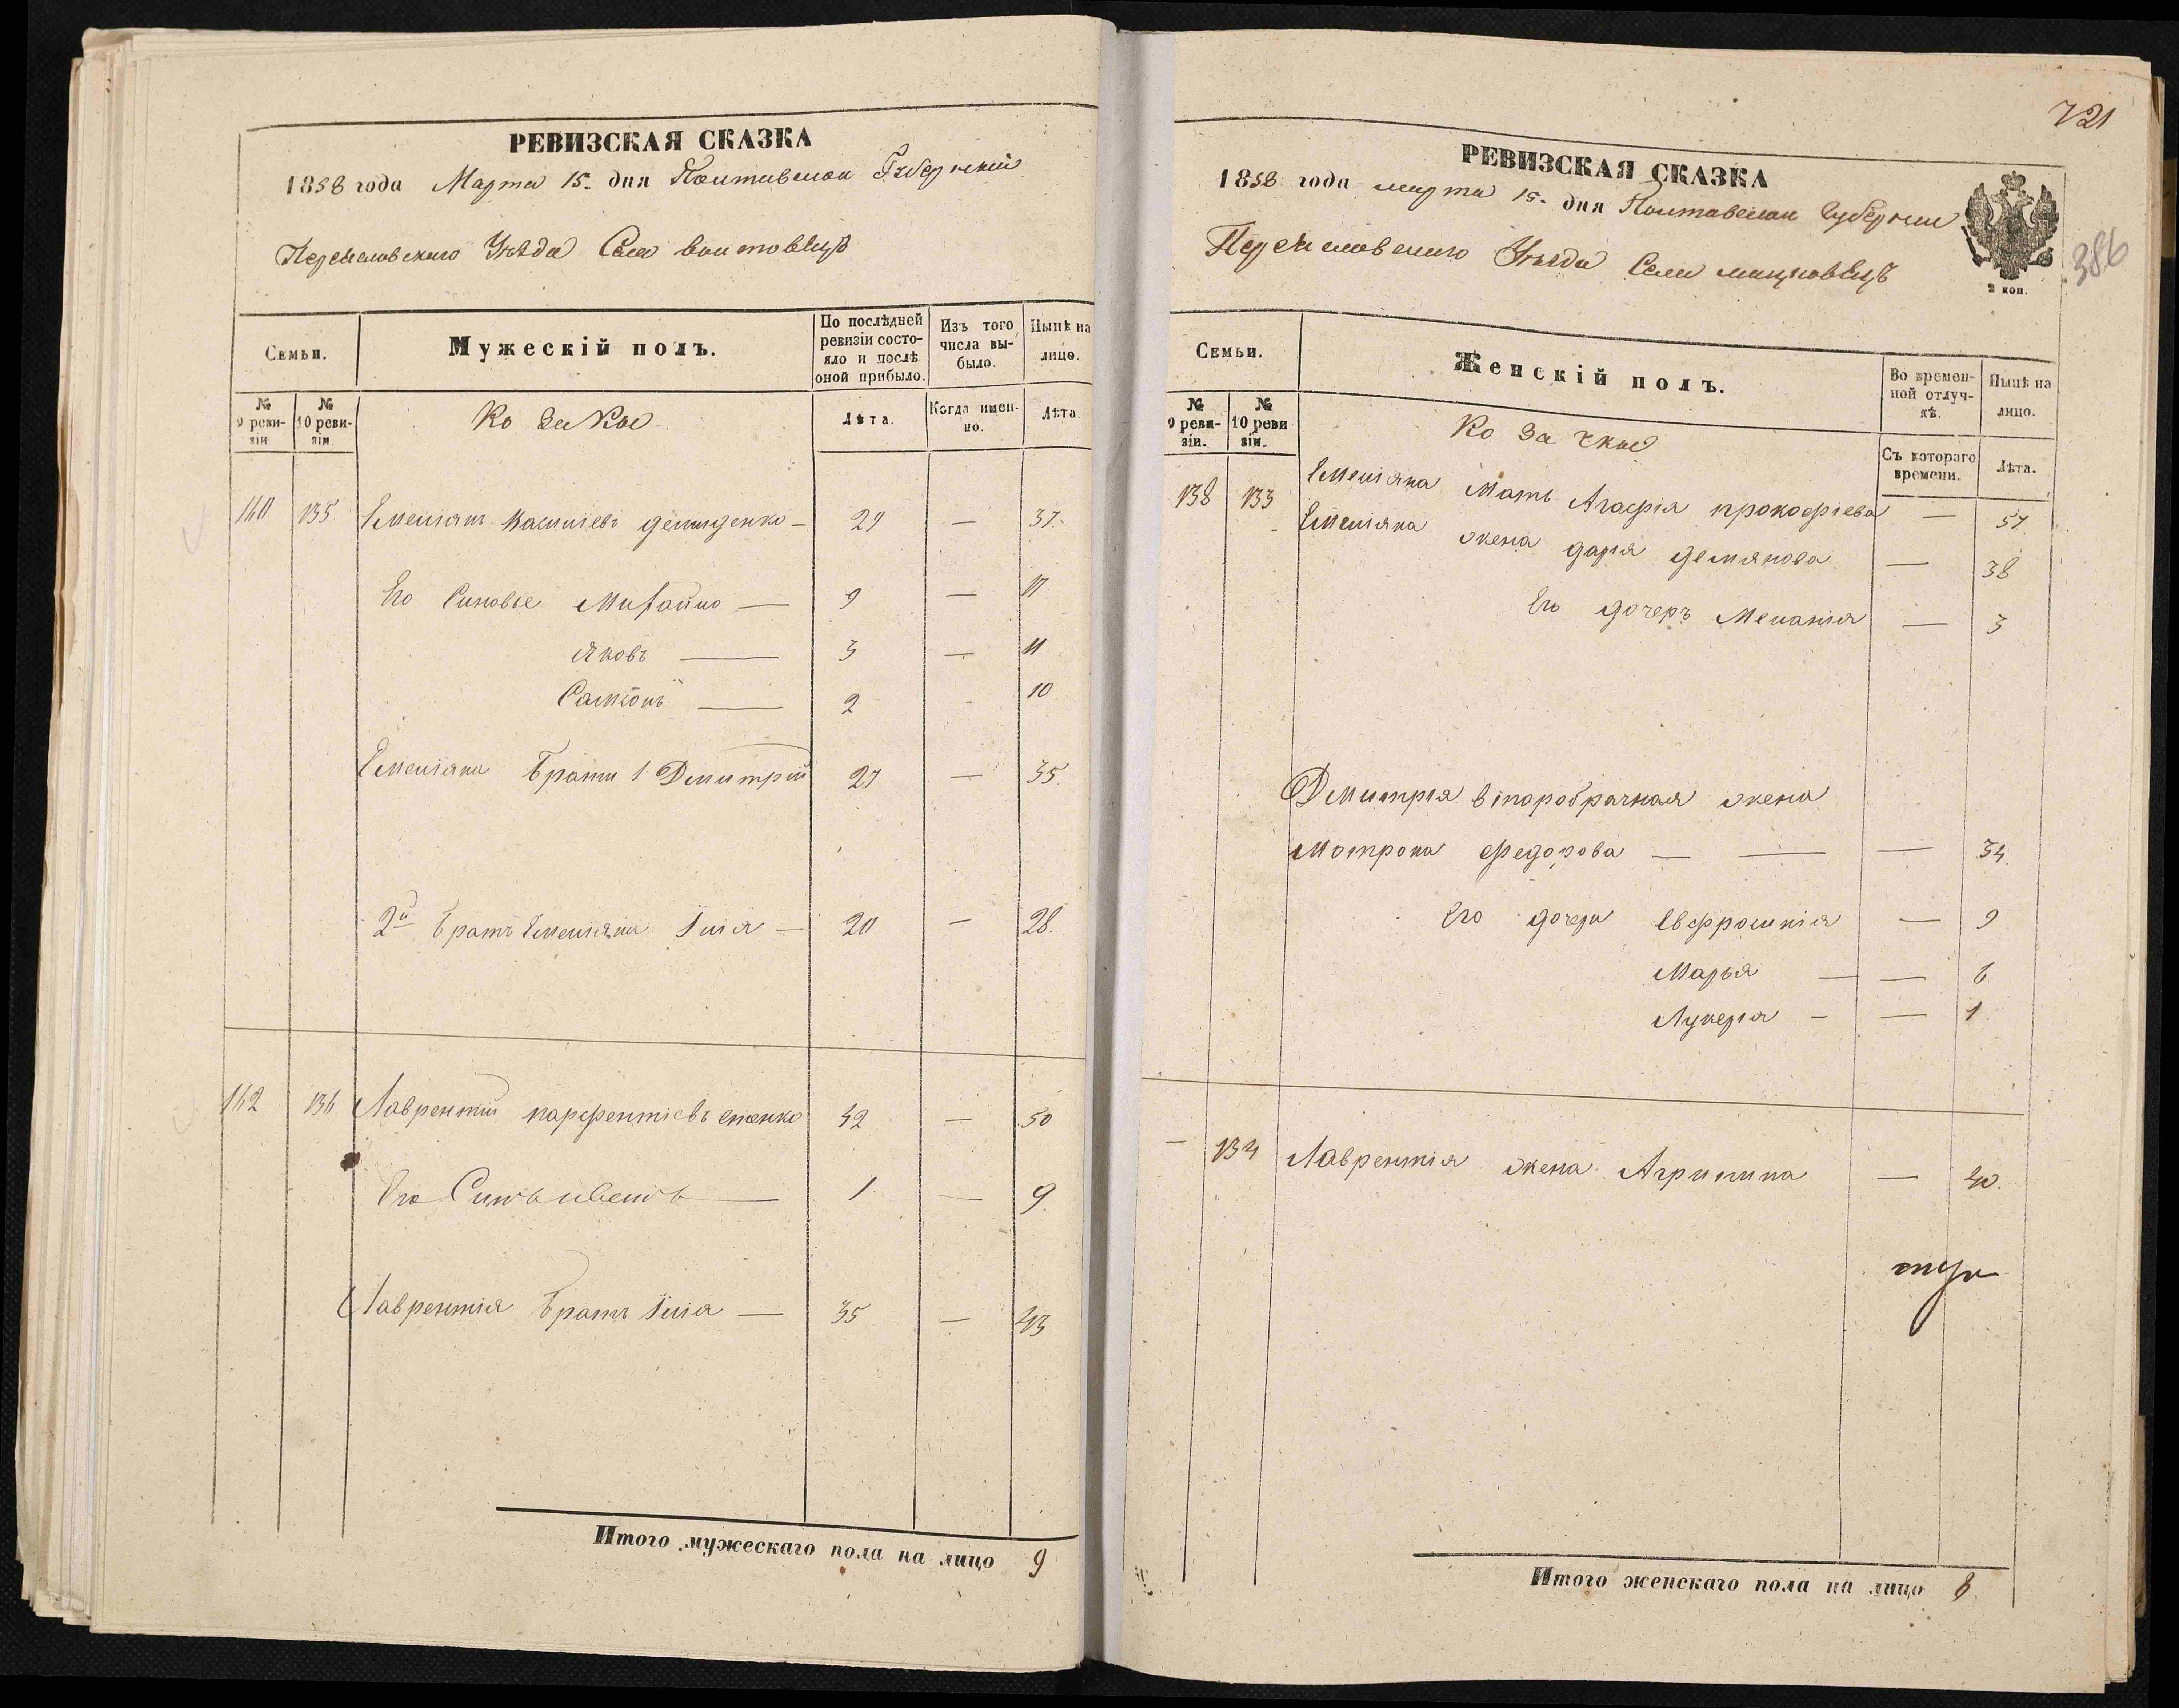 РЕВИЗСКАЯ СКАЗКА
1858 года Марта 15. дня Полтавской Губерніи
Переяславскаго Уѣзда Села Войтовецъ
Семьи.
Мужескій полъ.
По послѣдней ревизіи состояло и послѣ оной прибыло.
Изъ того числа выбыло.
Нынѣ на лицо.
№ 9 ревизіи
№ 10 ревизіи.
Козаки
Лѣта.
Когда именно.
Лѣта.
135 Емеліянъ Василіевъ Демиденко — 29 — 37.
Его Синовье Михайло — 9 — 17
Яковъ — 3 — 11
Самсонъ — 2 - 10
Емеліяна Брати 1 Дмитрій 27 — 35.
2й Братъ Емеліяна Илія — 20 — 28.
162 136 Лаврентій парфентіевъ 42 — 50
Его Синъ — 1 — 9.
Лаврентія Братъ Илія — 35 — 43
Итого мужескаго пола на лицо 9
721
РЕВИЗСКАЯ СКАЗКА
1858 года марта 15. дня Полтавской Губерніи
386
Переяславскаго Уѣзда Села
2 коп.
Семьи.
Женскій полъ.
Во временной отлучкѣ.
Нынѣ на лицо.
№ 9 ревизіи.
№ 10 ревизіи.
Козачки
Съ котораго времени.
Лѣта.
138 133 Емеліяна Мать Агафія прокофіева — 57
Емеліяна жена дарія демянова — 38
Его дочеръ Меланія — 3
Дмитрія второбрачная жена
Мотрона федорова — — — 34.
Его дочери Евфросинія — 9
Марья — — 6
Лукерія — — 1
— 134 Лаврентія жена Агрипина — 40.
Итого женскаго пола на лицо 8.